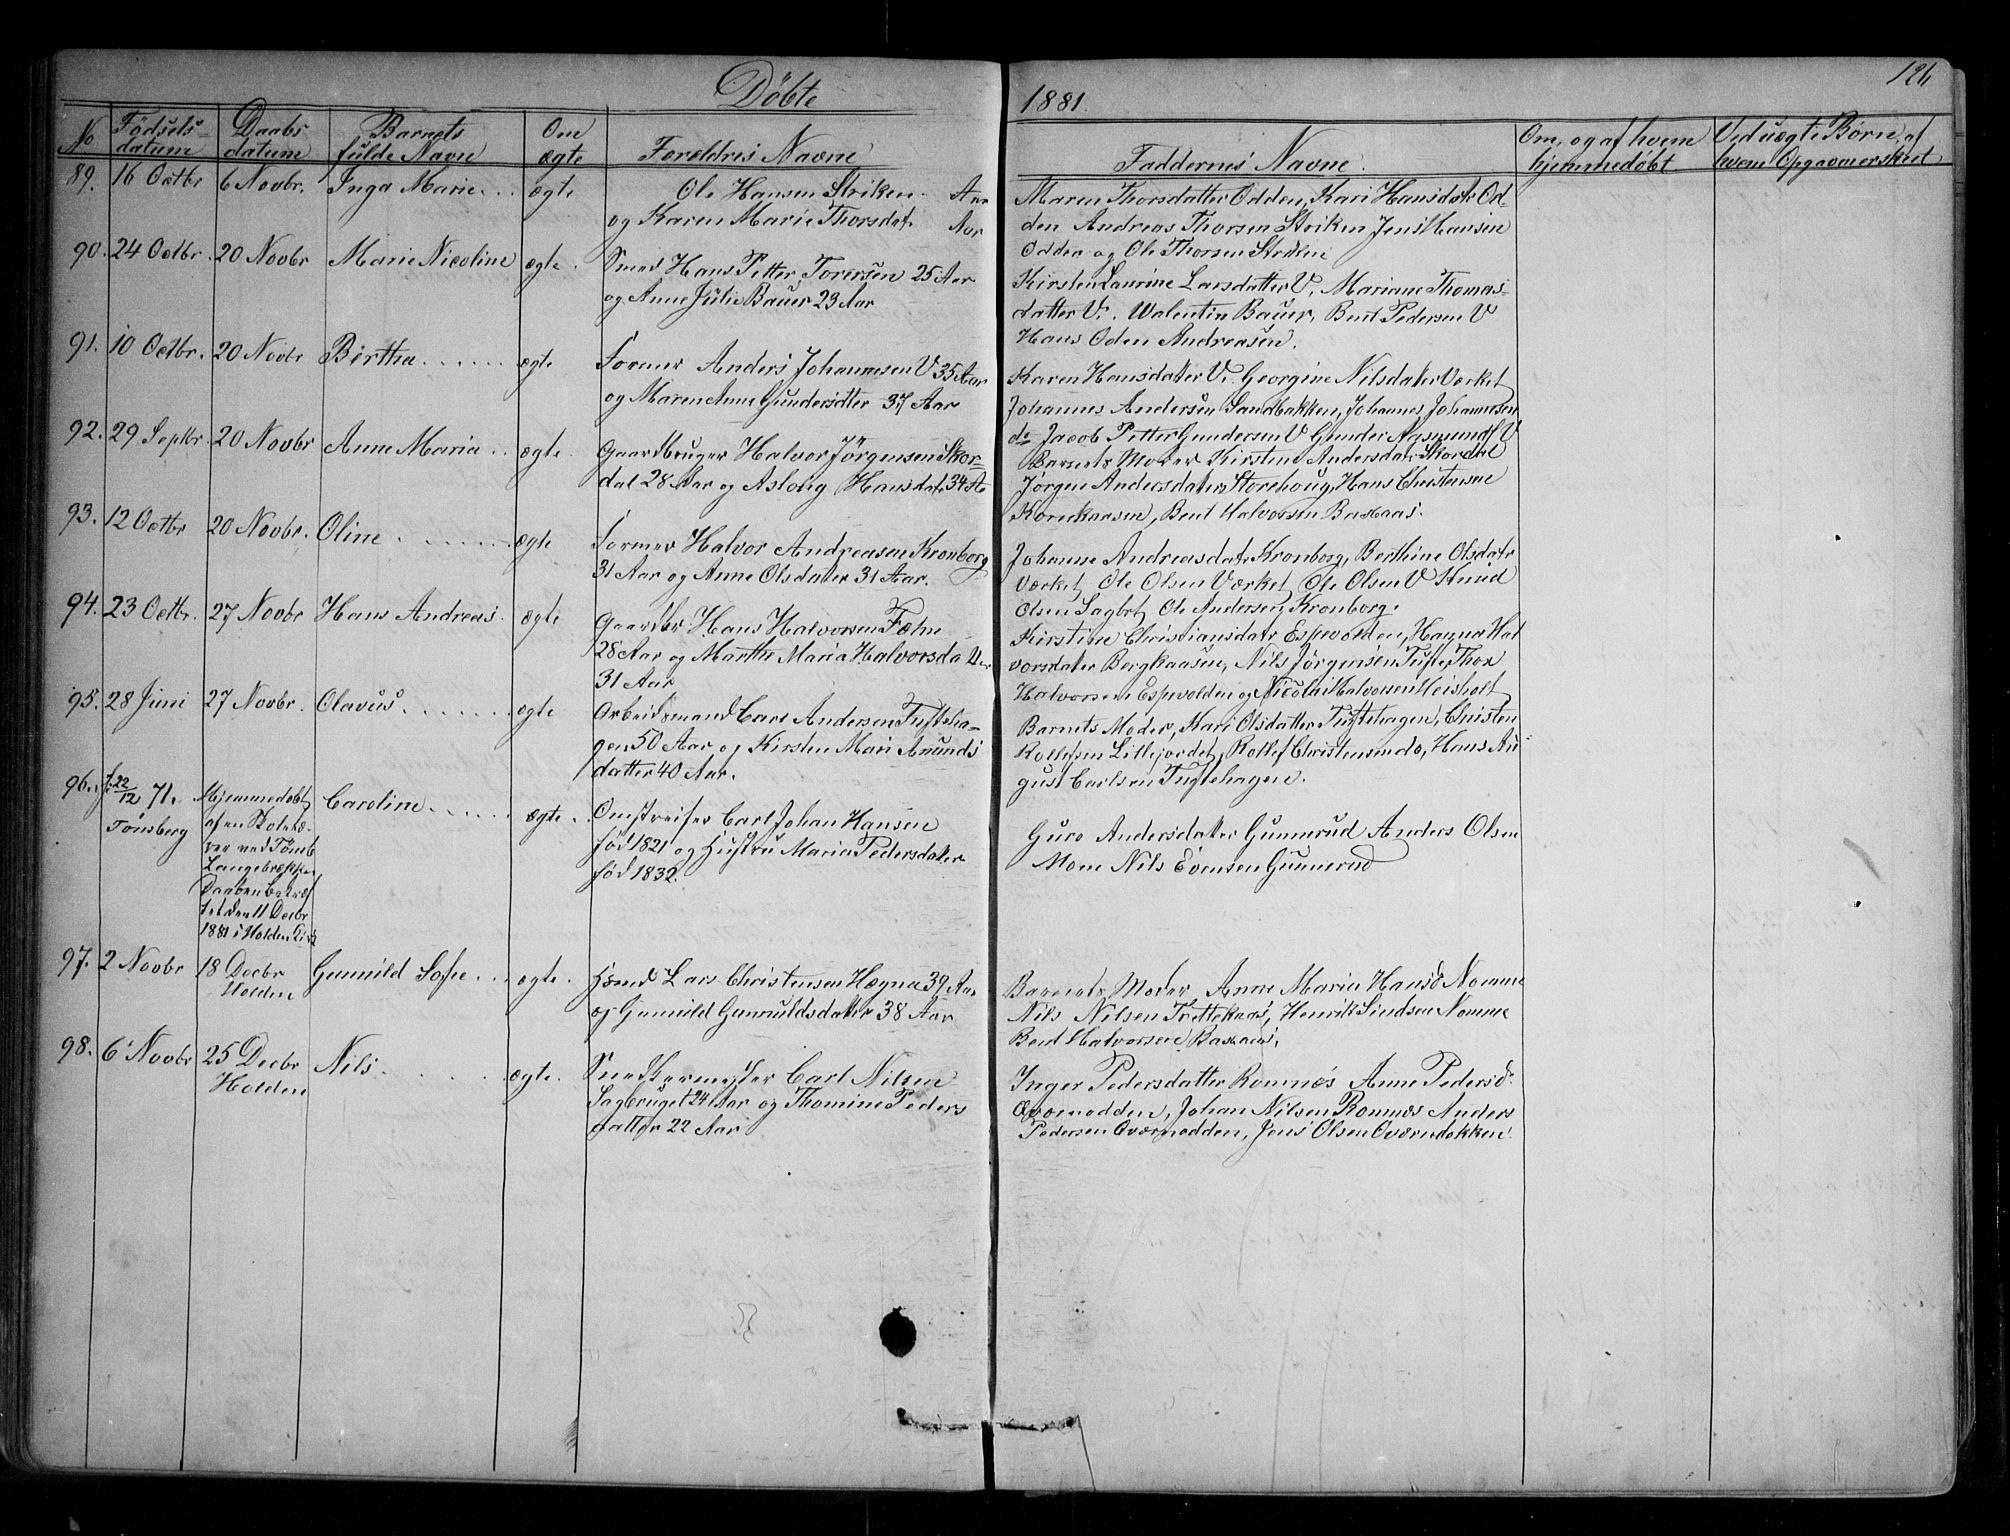 Döbte
1881.
126
No
Födsels-
datum
Daabs
datum
Barnets
fulde Navn
Om
ægte
Foreldres Navne
Faddernes Navne.
Om, og af hvem
hjemmedöbt
Ved uægte Börn, af
hvem Opgaven er skeet
89. 16 Octbr 6 Novbr. Inga Marie . . . ægte Ole Hansen Striken. Aar
og Karen Marie Thorsdat. Aar
Maren Thorsdatter Odden, Kari Hansdatr Od-
den Andreas Thorsen Striken Jens Hansen
Odden og Ole Thorsen Striken
90. 24 Octbr. 20 Novbr Marie Nicoline ægte. Smed Hans Petter Torersen 25 Aar
og Anne Julie Bauer 23 Aar
Kirsten Laurine Larsdatter V. Mariane Thomas-
datter V. Walentin Bauer, Bent Pedersen V
Hans Oden Andreasen.
91. 10 Octbr. 20 Novbr Birtha . . . . . . ægte Former Anders Johannesen V 35 Aar
og Maren Anne Gundersdtter 37 Aar
Karen Hansdatter V. Georgine Nilsdater Værket
Johannes Andersen Sandbakken, Johannes Johannesen
do Jacob Petter Gundersen V Gunder Rasmunds V
92. 29 Septbr. 20 Novbr Anne Maria . . ægte. Gaardbruger Halvor Jörgensen Skor-
dal 28 Aar og Asloug Hansdat. 34 A
Barnets Moder Kirstine Andersdatr Skordal
Jörgen Andersdater Storehoug, Hans Christensen
Korsekaasen, Bent Halvorsen Baskaas.
93. 12 Octbr 20 Novbr. Oline . . . . . . . . ægte Former Halvor Andreasen Kronborg
31 Aar og Anne Olsdater 31 Aar.
Johanne Andreasdatr Kronborg, Berthine Olsdatr
Værket, Ole Olsen Værket, Ole Olsen V Knud
Olsen Sagbrt, Ole Andersen Kronborg.
94. 23 Octbr. 27 Novbr Hans Andreas. ægte Gaardbr Hans Halvorsen Fæhn
28 Aar og Marthe Maria Halvorsdatter
31 Aar
Kirstine Christiansdatr Espevolden, Hanna Hal
vorsdater Bergkaasen, Nils Jörgensen Tufte, Thor
Halvorsen Espevolden og Nicolai Halvorsen Heisholt
95. 28 Juni 27 Novbr. Olavus . . . . . . . ægte Arbeidsmand Carl Andersen Tufteha-
gen 50 Aar og Kirsten Mari Amunds
datter 40 Aar.
Barnets Moder, Kari Olsdatter Tuftehagen, Christen
Rollefsen Lillejordet, Rollef Christensen do, Hans Au
gust Carlsen Tuftehagen.
96. f. 22/12 71.
Tönsberg
Hjemmedöbt
af en Skolelæ-
rer ved Tönsb
Daaben bekræf
tet den 11 Decbr
1881 i Holden Kirk
Caroline . . . . . . . ægte. Omstreifer Carl Johan Hansen
föd 1821 og Hustru Maria Pedersdater
föd 1832.
Guro Andersdater Gunnerud Anders Olsen
Moen Nils Evensen Gunnerud
97. 2 Novbr 18 Decbr
Holden
Gunnild Sofie . . . ægte. Hsmd Lars Christensen Hægna 39 Aar
og Gunnild Gunnuldsdater 38 Aar
Barnets Moder Anne Maria Hansd Nomme
Nils Nilsen Trættekaas, Henrik Lindsen Nomme
Bent Halvorsen Baskaas.
98. 6 Novbr 25 Decbr
Holden
Nils . . . . . . . . ægte. Snedkermester Carl Nilsen
Sagbruget 24 Aar og Thomine Peders
datter 22 Aar
Inger Pedersdatter Romnæs Anne Pedersd.
Oværnodden, Johan Nilsen Romnæs Anders
Pedersen Oværnodden, Jens Olsen Oværnbakken.